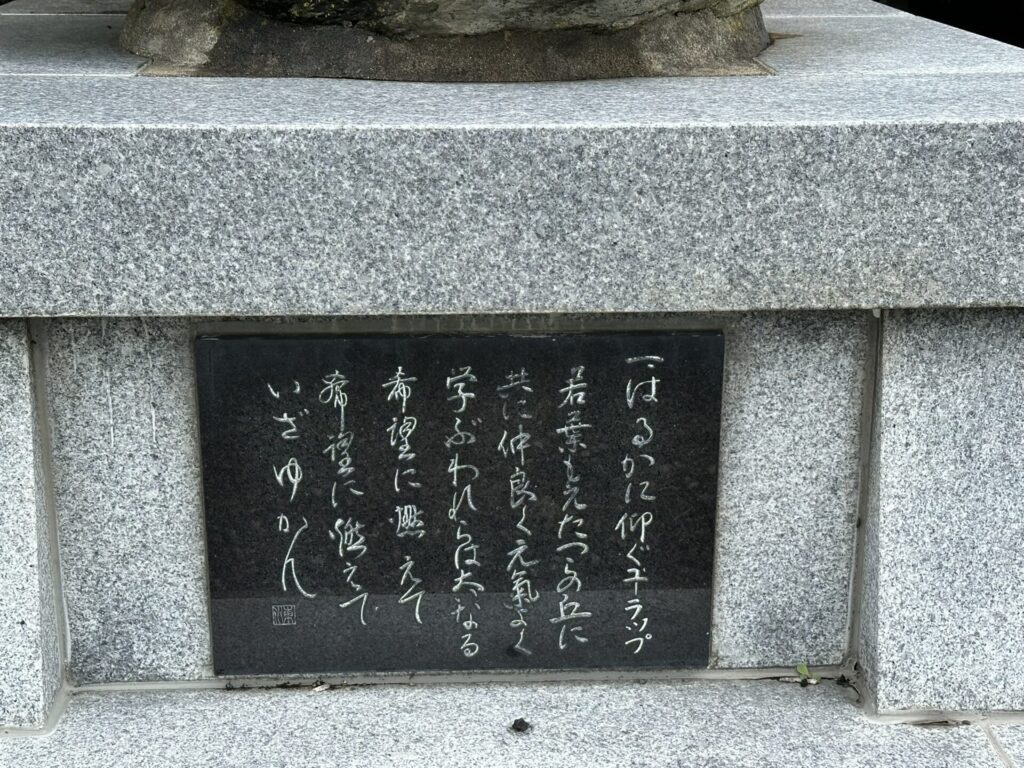 一はるかに仰ぐユーラップ
若葉もえたつこの丘に
共に仲良く元氣よく
学ぶわれらは大いなる
希望に燃えて
希望に燃えて
いざゆかん